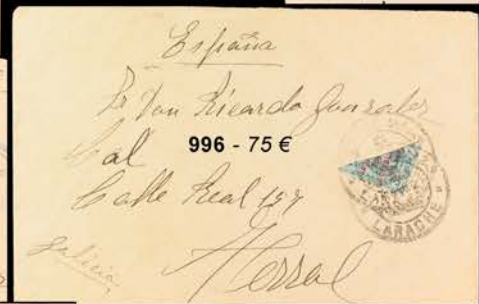 España
Sr Don Ricardo Gonzalez
Cal
996 - 75 €
Calle Real 157
Galicia
Ferrol
LARACHE